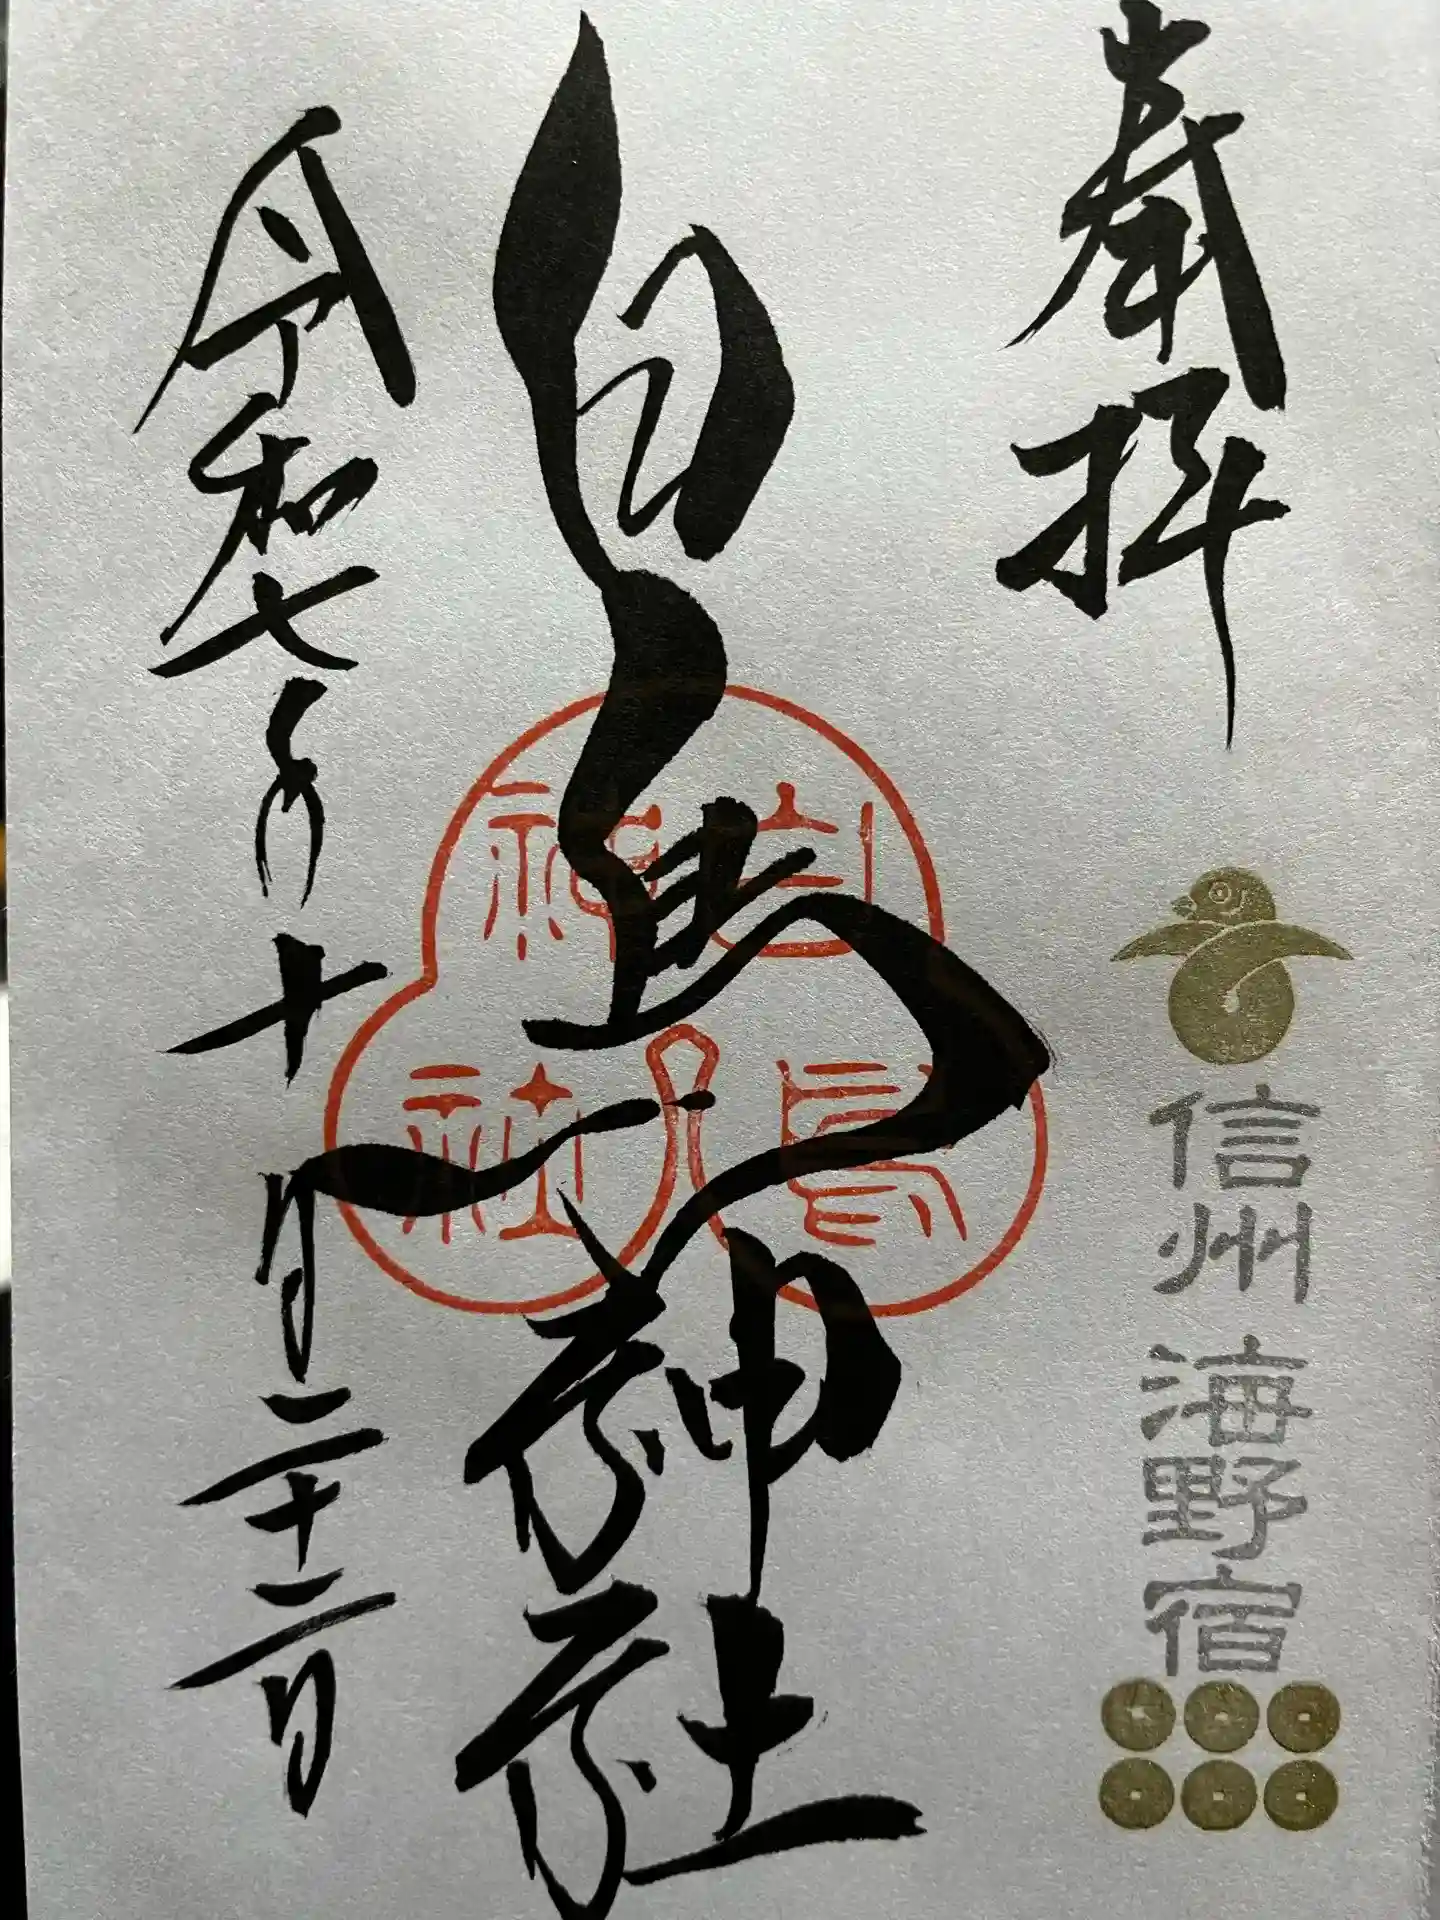 奉拝
信州 海野宿
白鳥神社
白鳥
神社
令和七年十月二十二日